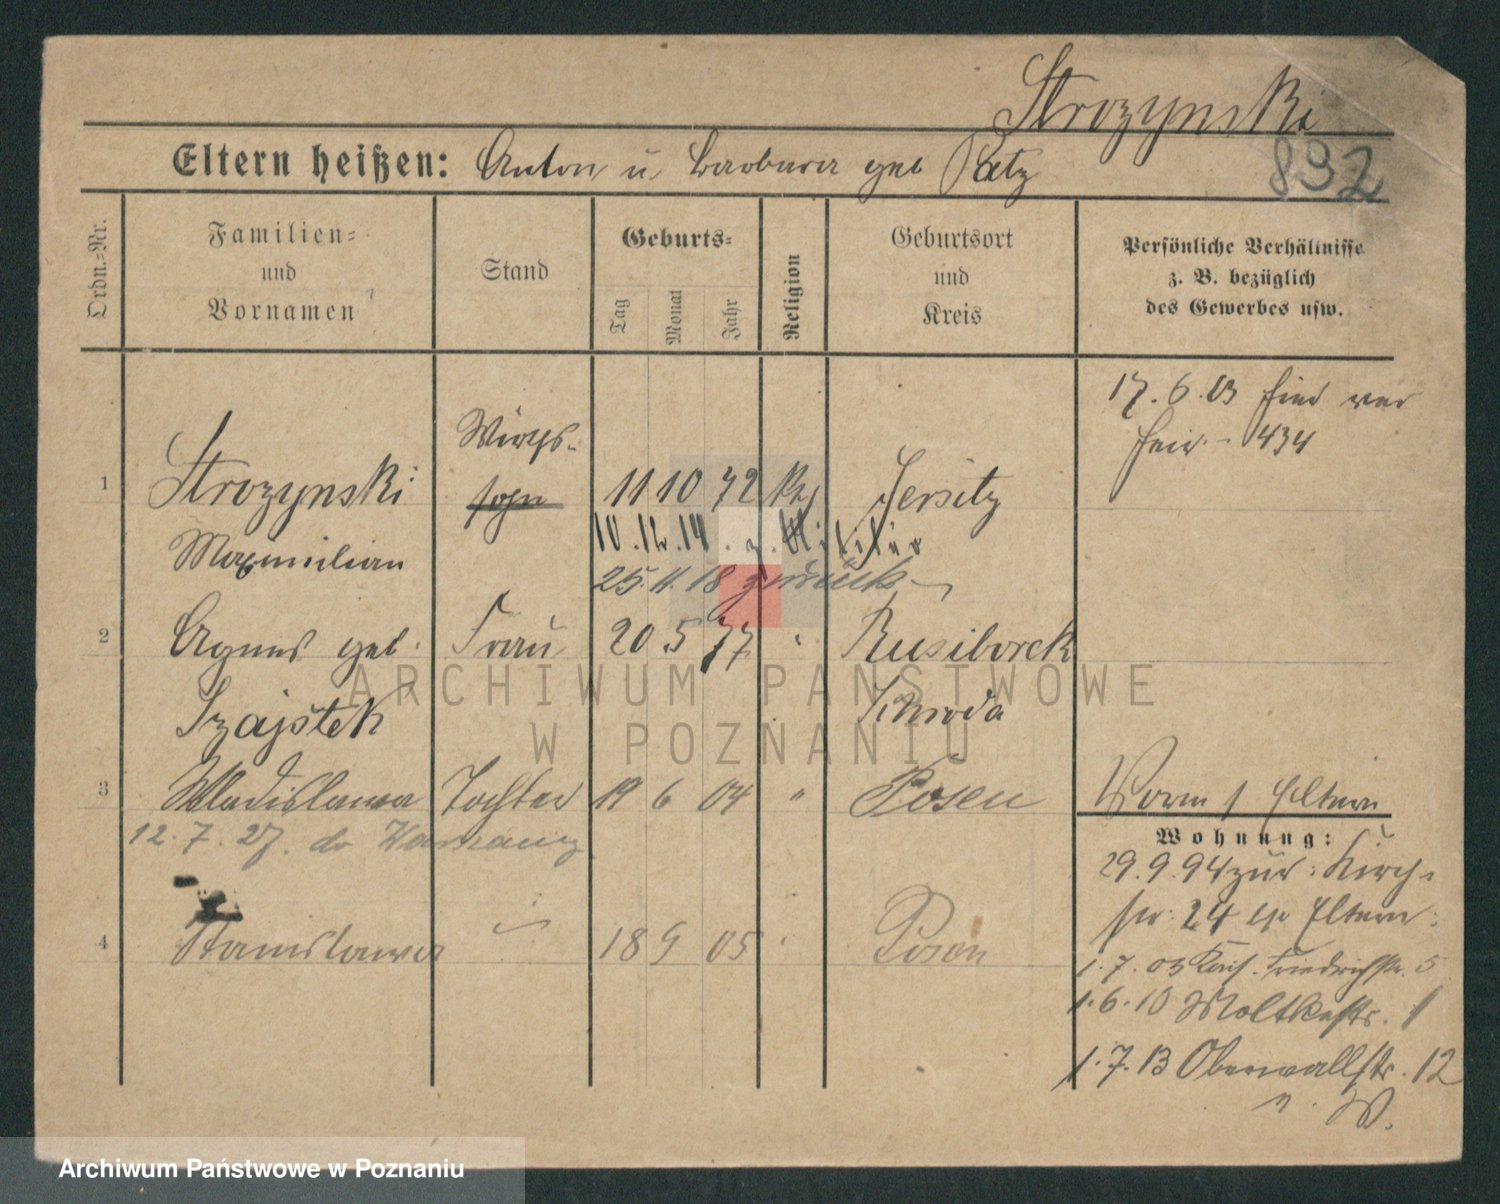 Strozynski
Eltern heißen: Anton u Barbara geb Patz
892
Ordn.-Nr.
Familien- und Vornamen
Stand
Geburts-
Tag
Monat
Jahr
Religion
Geburtsort und Kreis
Persönliche Verhältnisse
z. B. bezüglich
des Gewerbes usw.
17.6.03
434
1 Strozynski Wirths- 11 10 72 Kth Jersitz
sohn
Maximilian
10.12.14. z. Militär
25.11.18 zurück
2 Agnes geb. Frau 20 5 77 " Rusiborek
Szajstek Schroda
3 Wladislawa Tochter 19 6 04 " Posen
Eltern
12.7.27. do Warszawy
4 Stanislawa " 18 9 05 " Posen
Wohnung:
29.9.94 zur: Kirch-
str: 24 Eltern:
1.7.03 Kais. Friedrichstr. 5
1.6.10 Moltkestr. 1
1.7.13 Oberwallstr. 12
n. W.
ARCHIWUM PAŃSTWOWE
W POZNANIU
Archiwum Państwowe w Poznaniu